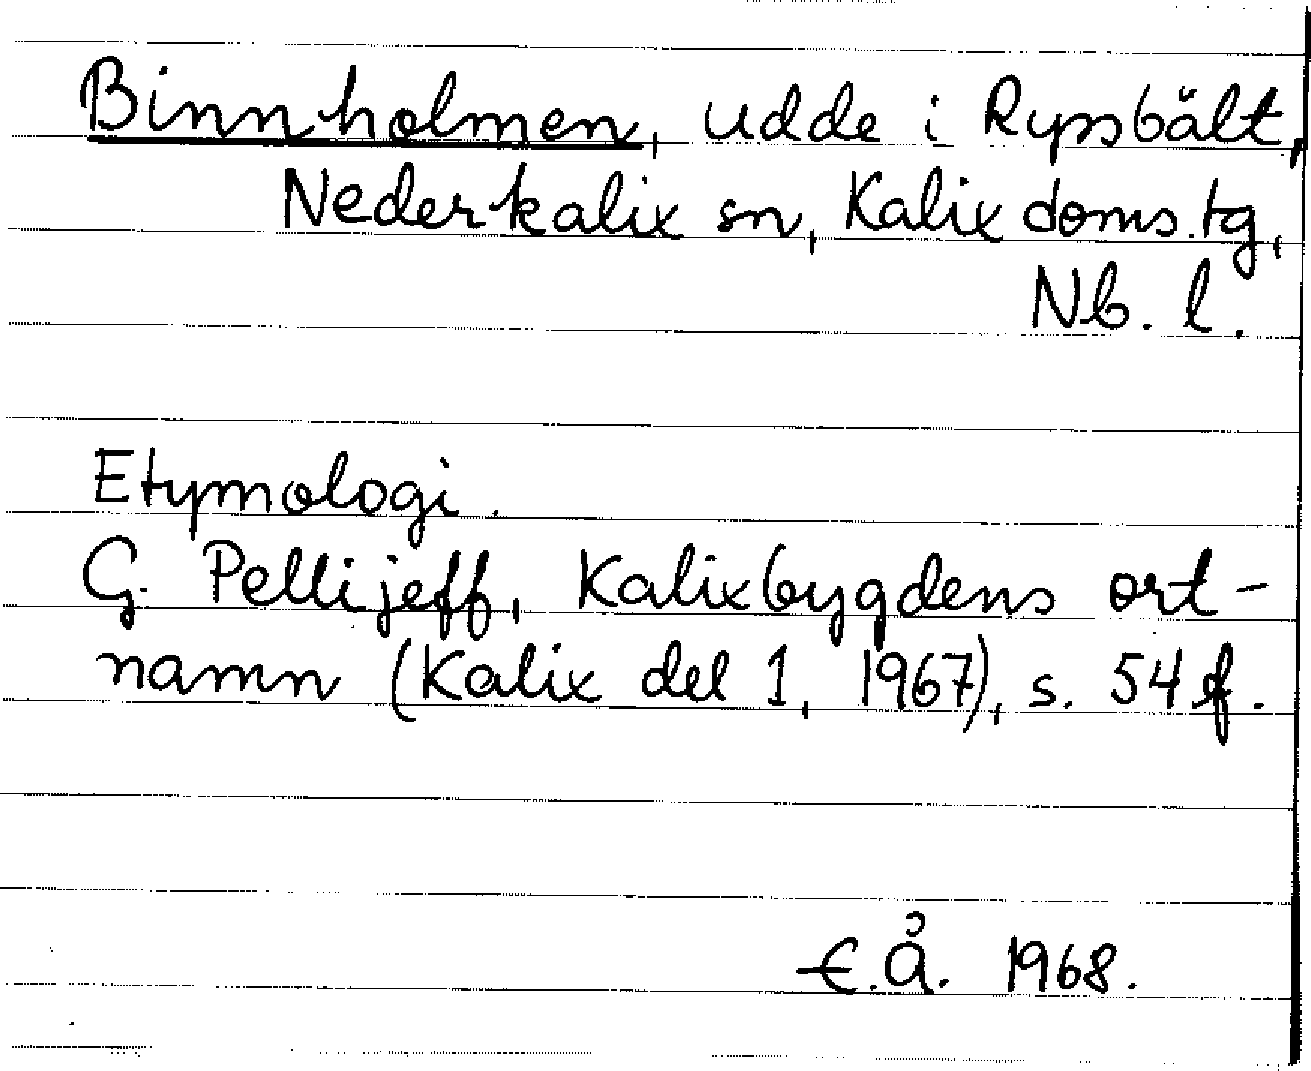 Binnholmen, udde i Ryssbält,
Nederkalix sn, Kalix doms.tg,
Nb. l.
Etymologi.
G. Pellijeff, Kalixbygdens ort-
namn (Kalix del 1, 1967), s. 54 f.
E.Å. 1968.